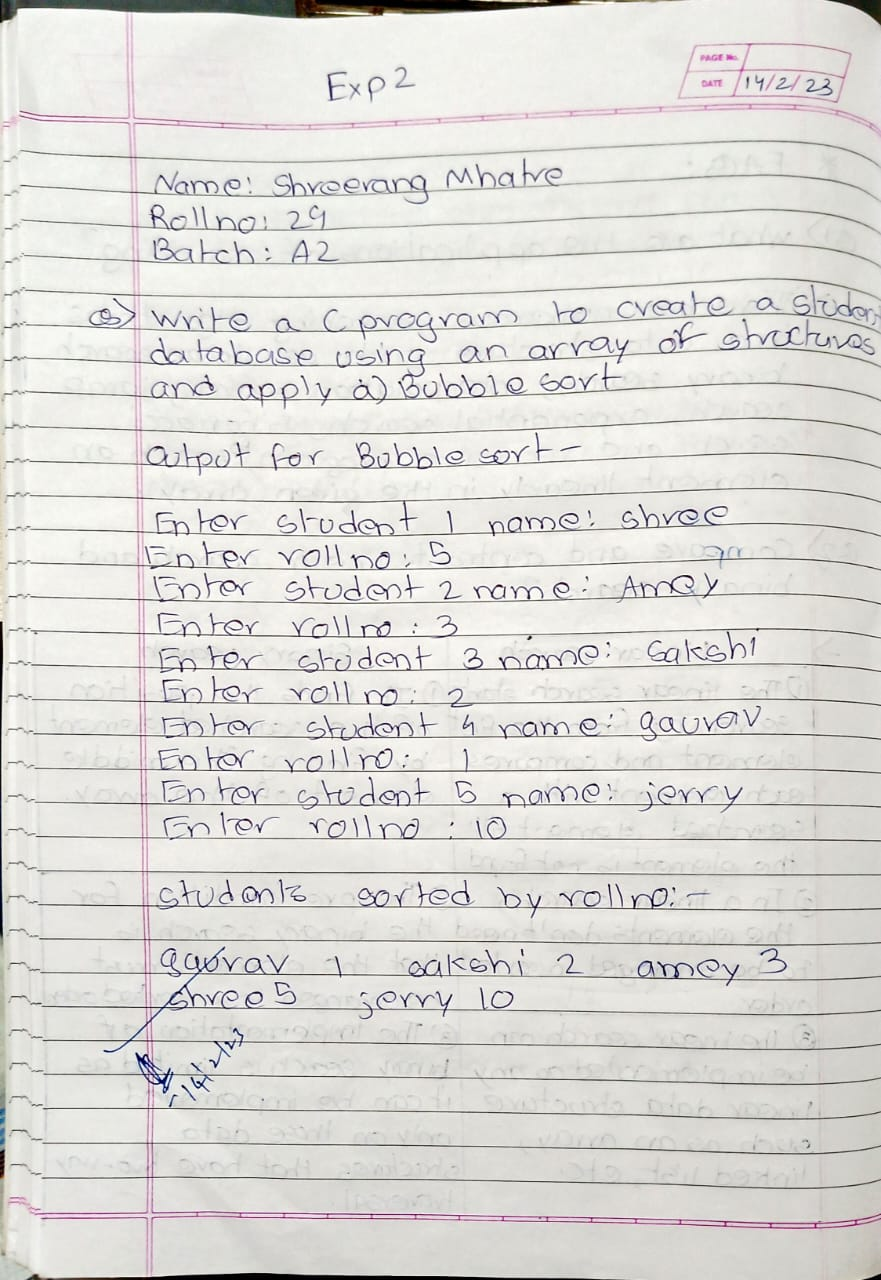 Exp 2
PAGE No.
DATE 14/2/23
Name: Shreerang Mhatre
Roll no: 29
Batch: A2
Q) Write a C program to create a student
database using an array of structures
and apply a) Bubble sort
Output for Bubble sort -
Enter student 1 name: shree
Enter roll no: 5
Enter student 2 name: Amey
Enter roll no: 3
Enter student 3 name: Sakshi
Enter roll no: 2
Enter student 4 name: gaurav
Enter roll no: 1
Enter student 5 name: jerry
Enter roll no: 10
students sorted by roll no:-
gaurav 1 sakshi 2 amey 3
shree 5 jerry 10
14/2/23